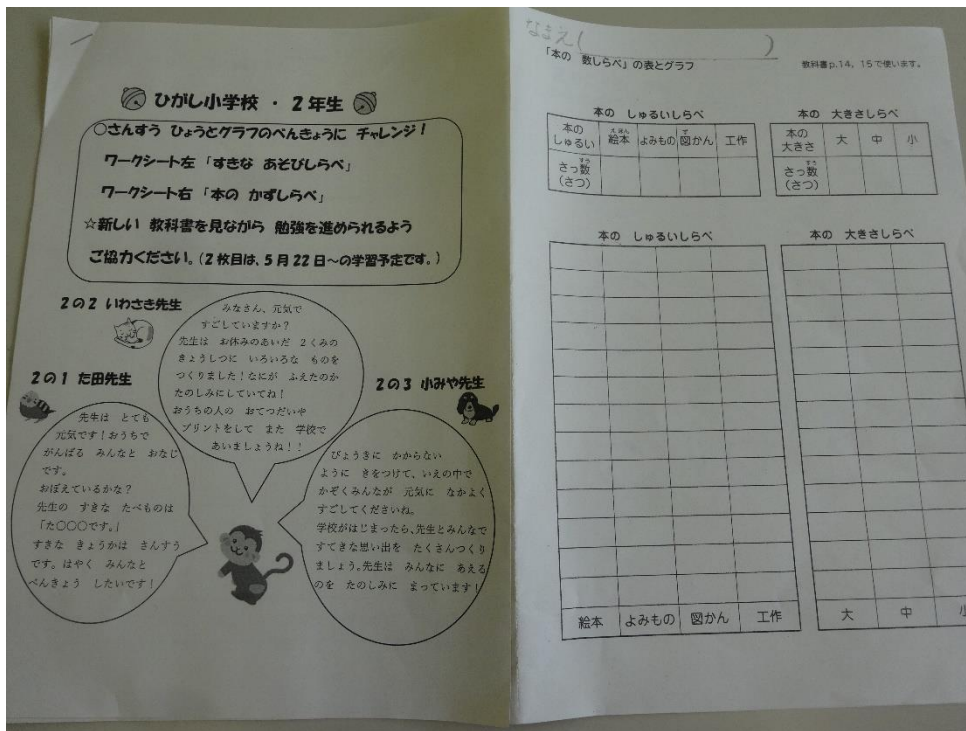 ひがし小学校 ・ 2年生
○さんすう ひょうとグラフのべんきょうに チャレンジ!
ワークシート左 「すきな あそびしらべ」
ワークシート右 「本の かずしらべ」
☆新しい 教科書を見ながら 勉強を進められるよう
ご協力ください。(2枚目は、5月22日~の学習予定です。)
2の2 いわさき先生
みなさん、元気で
すごしていますか?
先生は お休みのあいだ 2くみの
きょうしつに いろいろな ものを
つくりました!なにが ふえたのか
たのしみにしていてね!
おうちの人の おてつだいや
プリントをして また 学校で
あいましょうね!!
2の1 た田先生
先生は とても
元気です!おうちで
がんばる みんなと おなじ
です。
おぼえているかな?
先生の すきな たべものは
「た○○○です。」
すきな きょうかは さんすう
です。はやく みんなと
べんきょう したいです!
2の3 小みや先生
びょうきに かからない
ように きをつけて、いえの中で
かぞくみんなが 元気に なかよく
すごしてくださいね。
学校がはじまったら、先生とみんなで
すてきな思い出を たくさんつくり
ましょう。先生は みんなに あえる
のを たのしみに まっています!
なまえ( )
「本の 数しらべ」の表とグラフ
教科書p.14、15で使います。
本の しゅるいしらべ
本の しゅるい 絵本 よみもの 図かん 工作
えほん ず
さっ数 (さつ)
すう
本の 大きさしらべ
本の 大きさ 大 中 小
さっ数 (さつ)
すう
本の しゅるいしらべ
絵本 よみもの 図かん 工作
本の 大きさしらべ
大 中 小